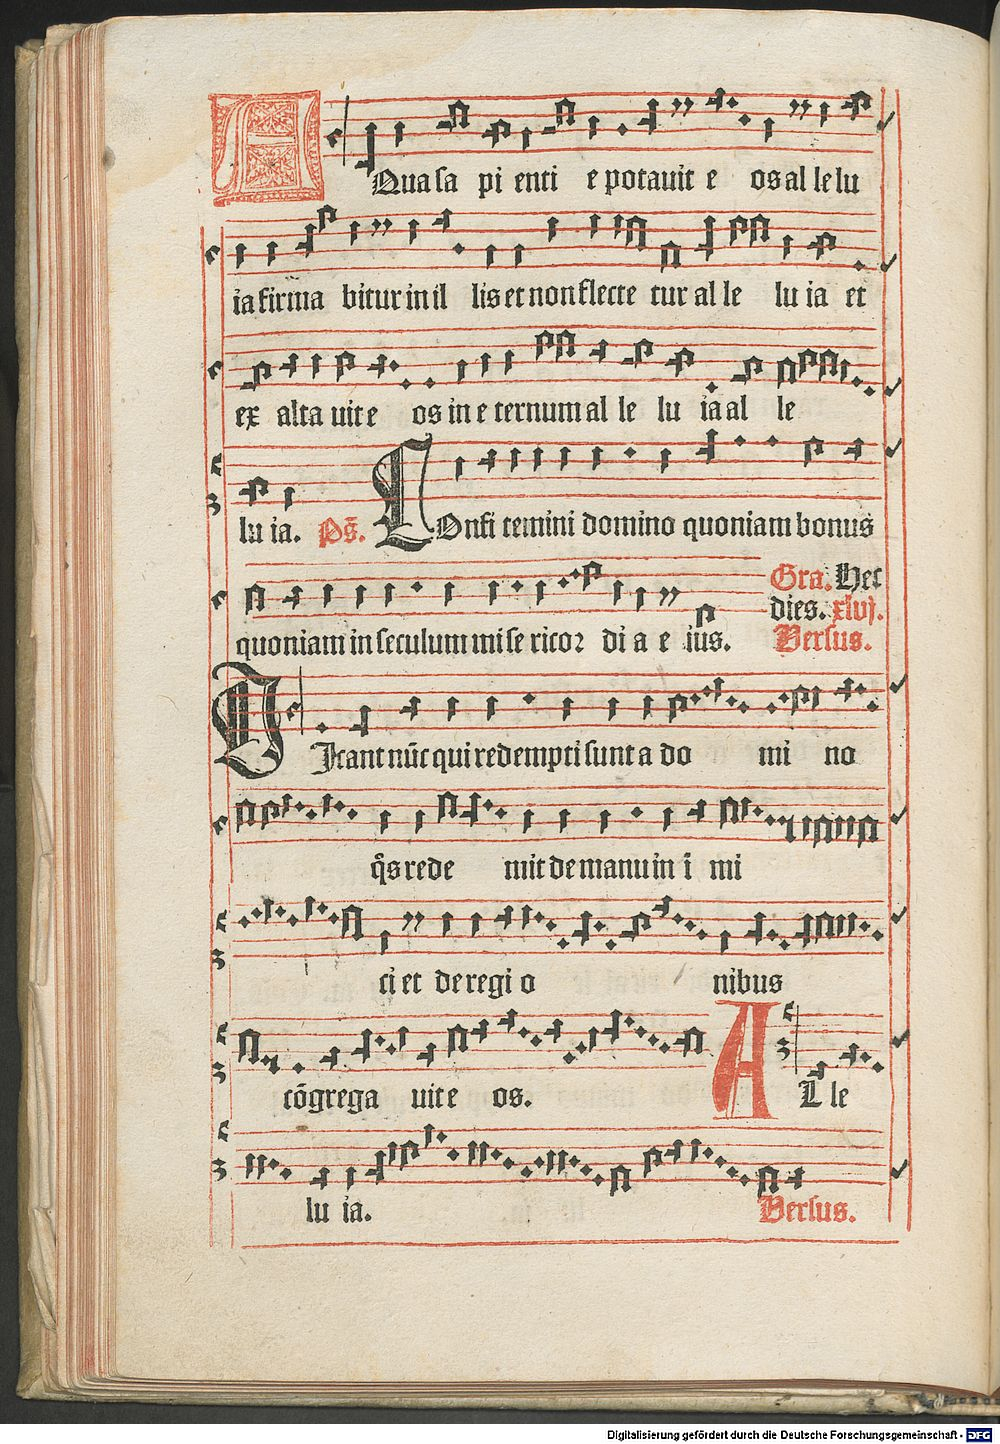 AQua sa pi enti e potauit e os al le lu
ia firma bitur in il lis et non flecte tur al le lu ia et
ex alta uit e os in e ternum al le lu ia al le
lu ia. Ps̄. COnfi temini domino quoniam bonus
quoniam in seculum mi se ricoꝛ di a e ius. Gra. Hec
dies. xlvj.
Versus.
DIcant nūc qui redempti sunt a do mi no
q̄s rede mit de manu in i mi
ci et de regi o nibus
cōgrega uit e os. AL le
lu ia. Versus.
Digitalisierung gefördert durch die Deutsche Forschungsgemeinschaft - DFG